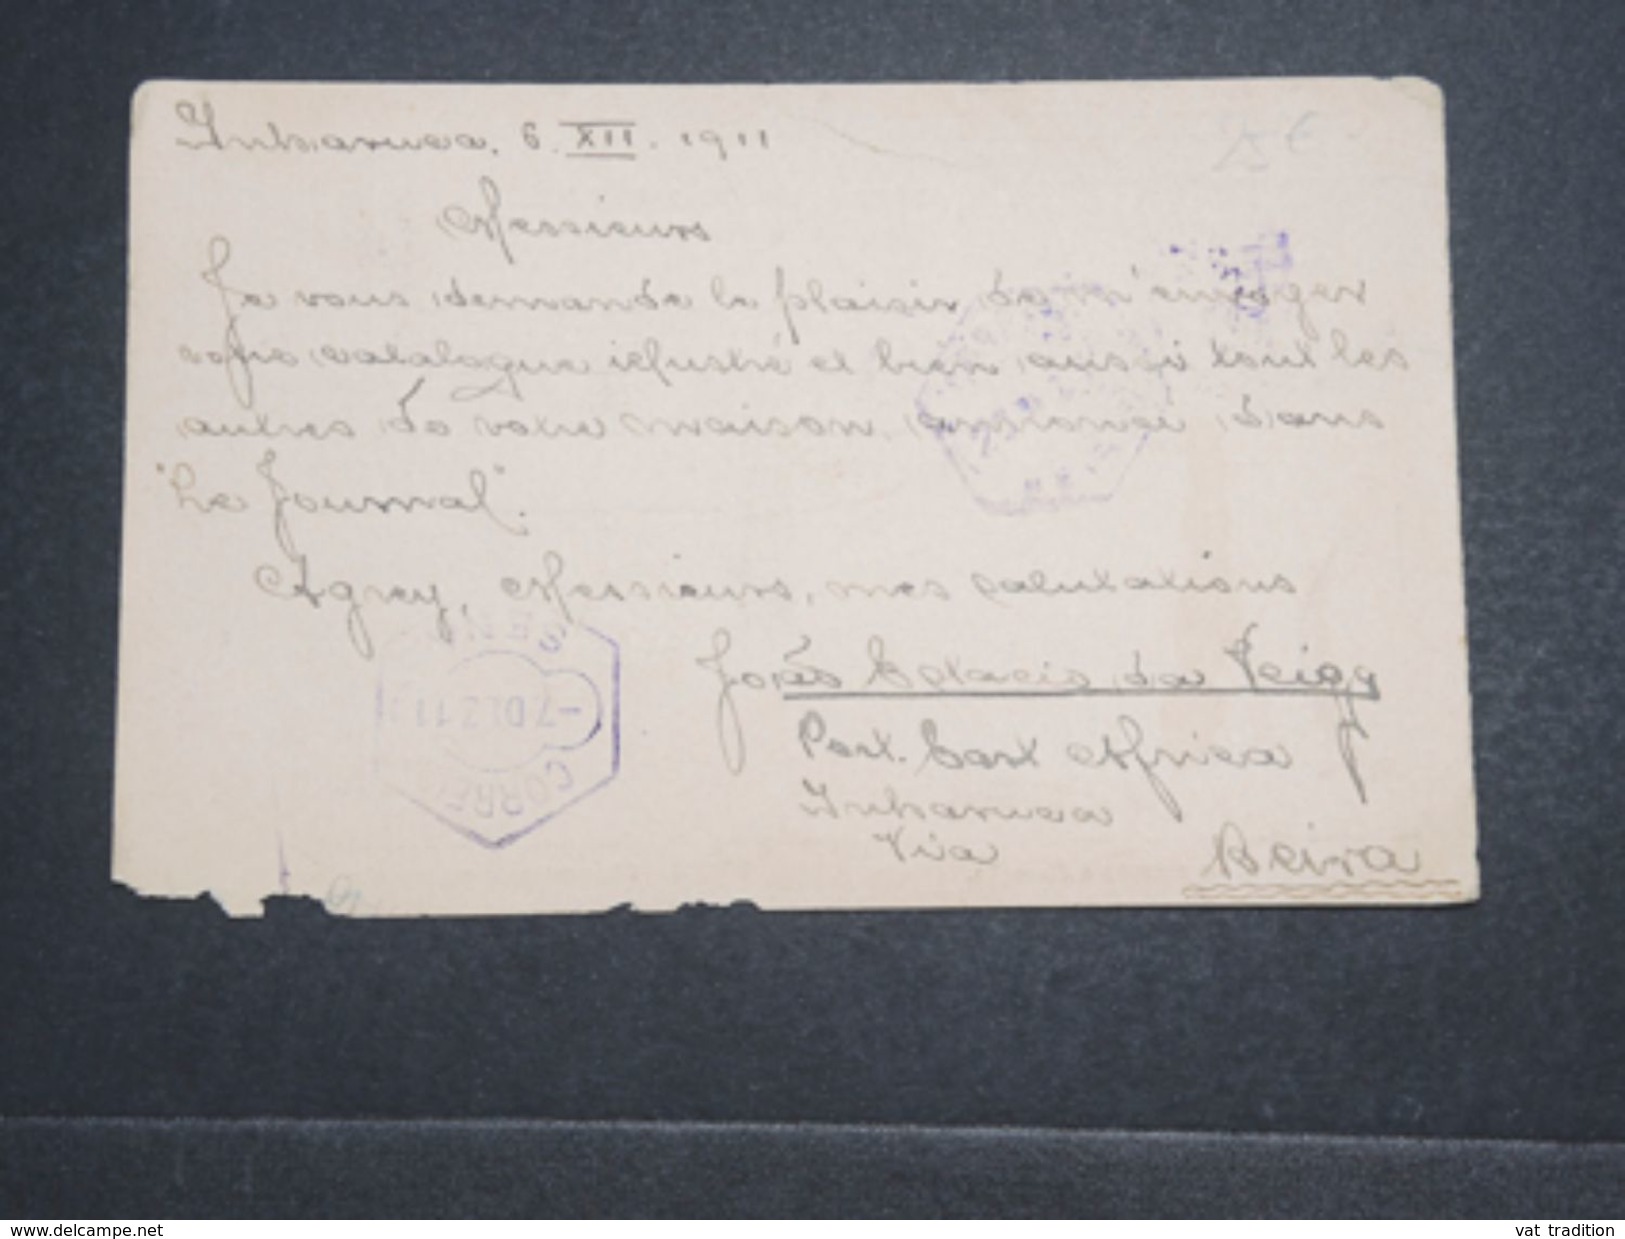 Inharuca, 6. XII. 1911
15 €
Messieurs
Je vous demande le plaisir de m'envoyer
catalogue et bien aussi tout les
autres de votre maison, dans
"Le Journal".
Agrey, Messieurs, mes salutations
João da Veiga
Port. East Africa
Inharuca
Via Beira
SEN
-7 DEZ 11
CORRE
www.delcampe.net
vat tradition